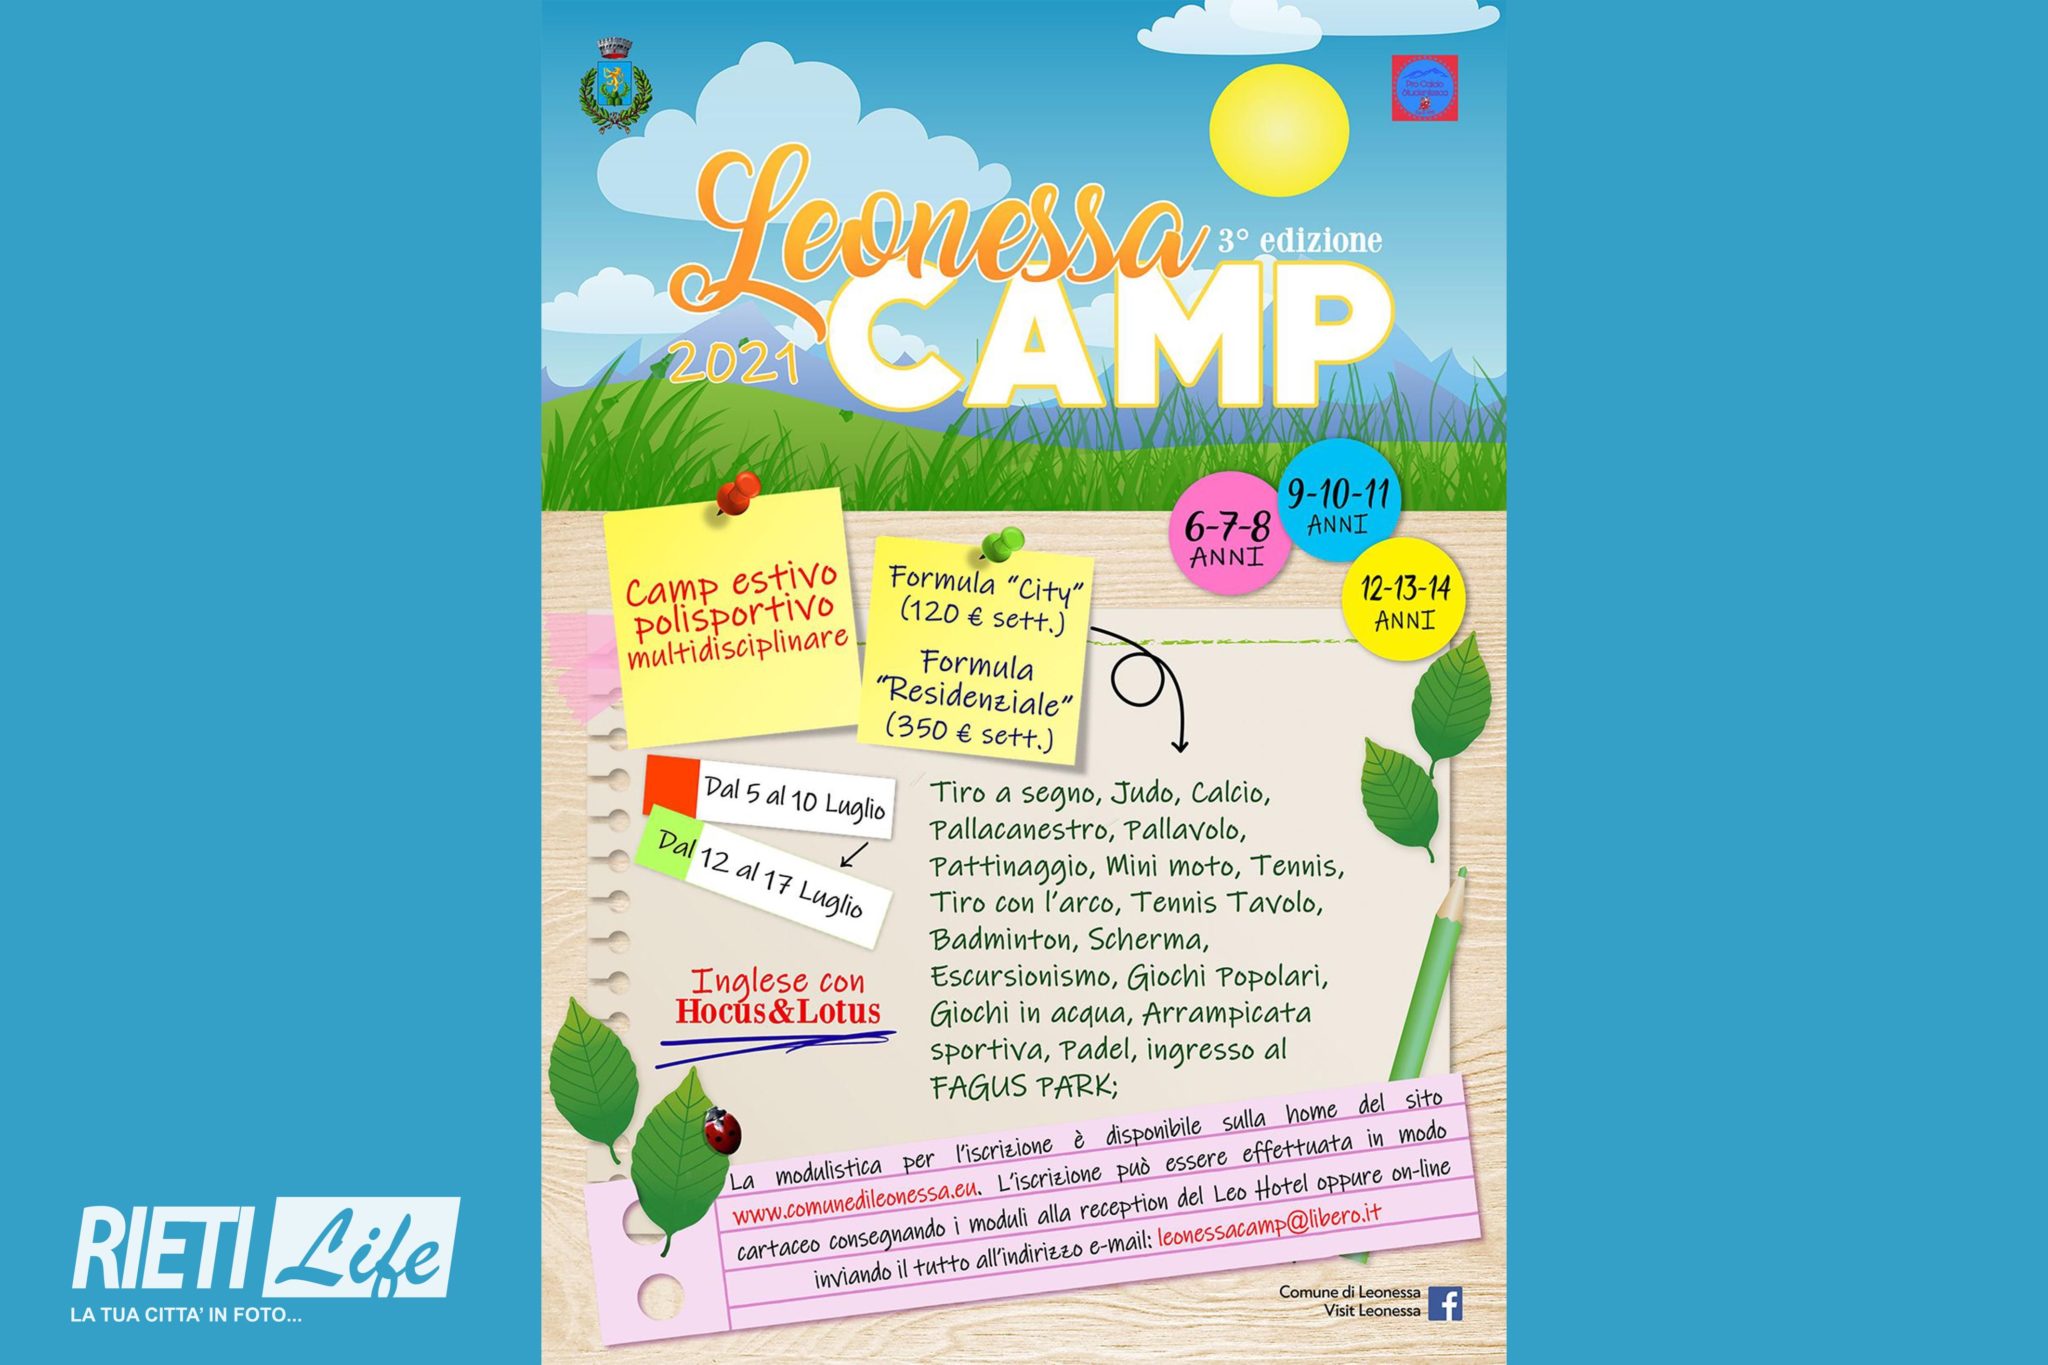 Pro Calcio
Studentesca
Leonessa
3° edizione
2021
CAMP
6-7-8
ANNI
9-10-11
ANNI
12-13-14
ANNI
Camp estivo
polisportivo
multidisciplinare
Formula "City"
(120 € sett.)
Formula
"Residenziale"
(350 € sett.)
Dal 5 al 10 Luglio
Dal 12 al 17 Luglio
Inglese con
Hocus&Lotus
Tiro a segno, Judo, Calcio,
Pallacanestro, Pallavolo,
Pattinaggio, Mini moto, Tennis,
Tiro con l'arco, Tennis Tavolo,
Badminton, Scherma,
Escursionismo, Giochi Popolari,
Giochi in acqua, Arrampicata
sportiva, Padel, ingresso al
FAGUS PARK;
La modulistica per l'iscrizione è disponibile sulla home del sito
www.comunedileonessa.eu. L'iscrizione può essere effettuata in modo
cartaceo consegnando i moduli alla reception del Leo Hotel oppure on-line
inviando il tutto all'indirizzo e-mail: leonessacamp@libero.it
Comune di Leonessa
Visit Leonessa
f
RIETI Life
LA TUA CITTA' IN FOTO...